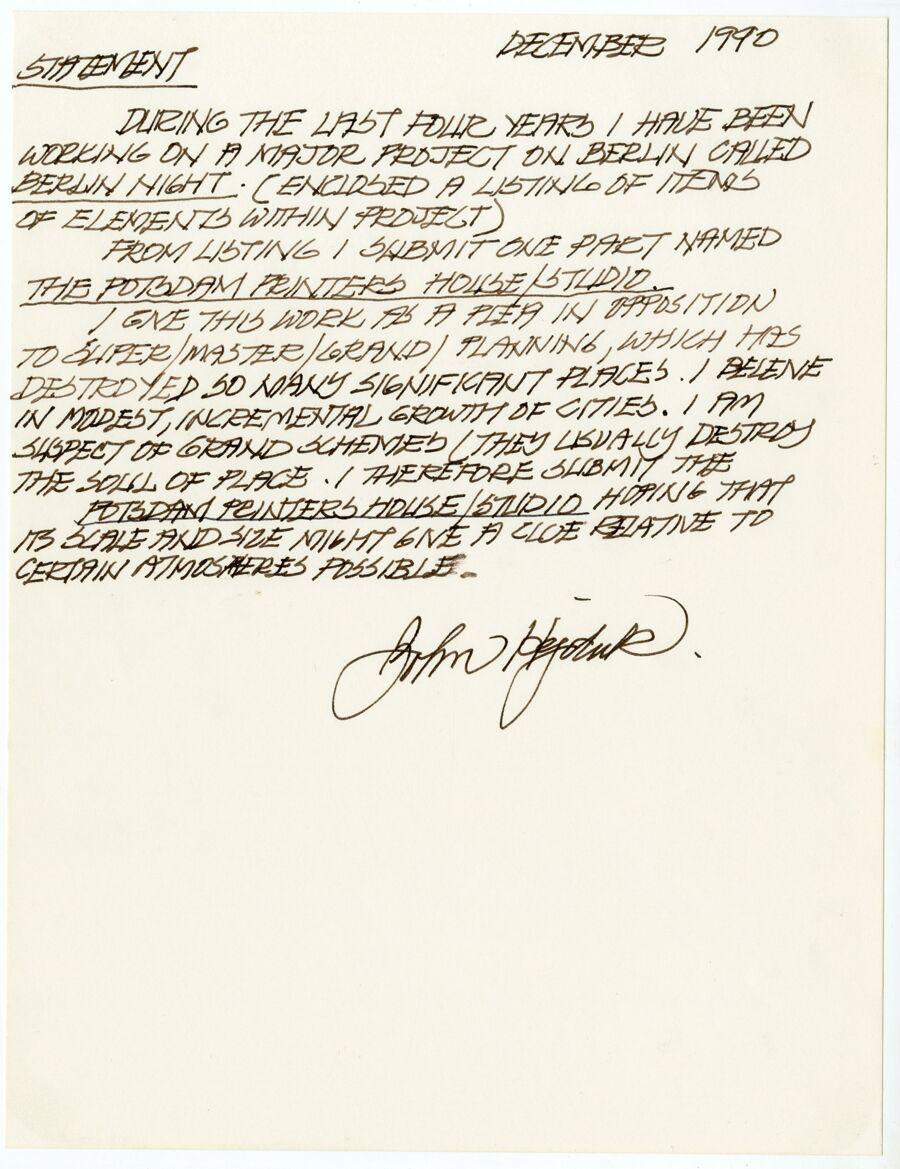 DECEMBER 1990
STATEMENT
DURING THE LAST FOUR YEARS I HAVE BEEN
WORKING ON A MAJOR PROJECT ON BERLIN CALLED
BERLIN NIGHT. (ENCLOSED A LISTING OF ITEMS
OF ELEMENTS WITHIN PROJECT)
FROM LISTING I SUBMIT ONE PART NAMED
THE POTSDAM PRINTERS HOUSE/STUDIO.
I GIVE THIS WORK AS A PLEA IN OPPOSITION
TO SUPER/MASTER/GRAND/ PLANNING, WHICH HAS
DESTROYED SO MANY SIGNIFICANT PLACES. I BELIEVE
IN MODEST, INCREMENTAL GROWTH OF CITIES. I AM
SUSPECT OF GRAND SCHEMES (THEY USUALLY DESTROY
THE SOUL OF PLACE. I THEREFORE SUBMIT THE
POTSDAM PRINTERS HOUSE/STUDIO HOPING THAT
ITS SCALE AND SIZE MIGHT GIVE A CLUE RELATIVE TO
CERTAIN ATMOSPHERES POSSIBLE.
John Hejduk.